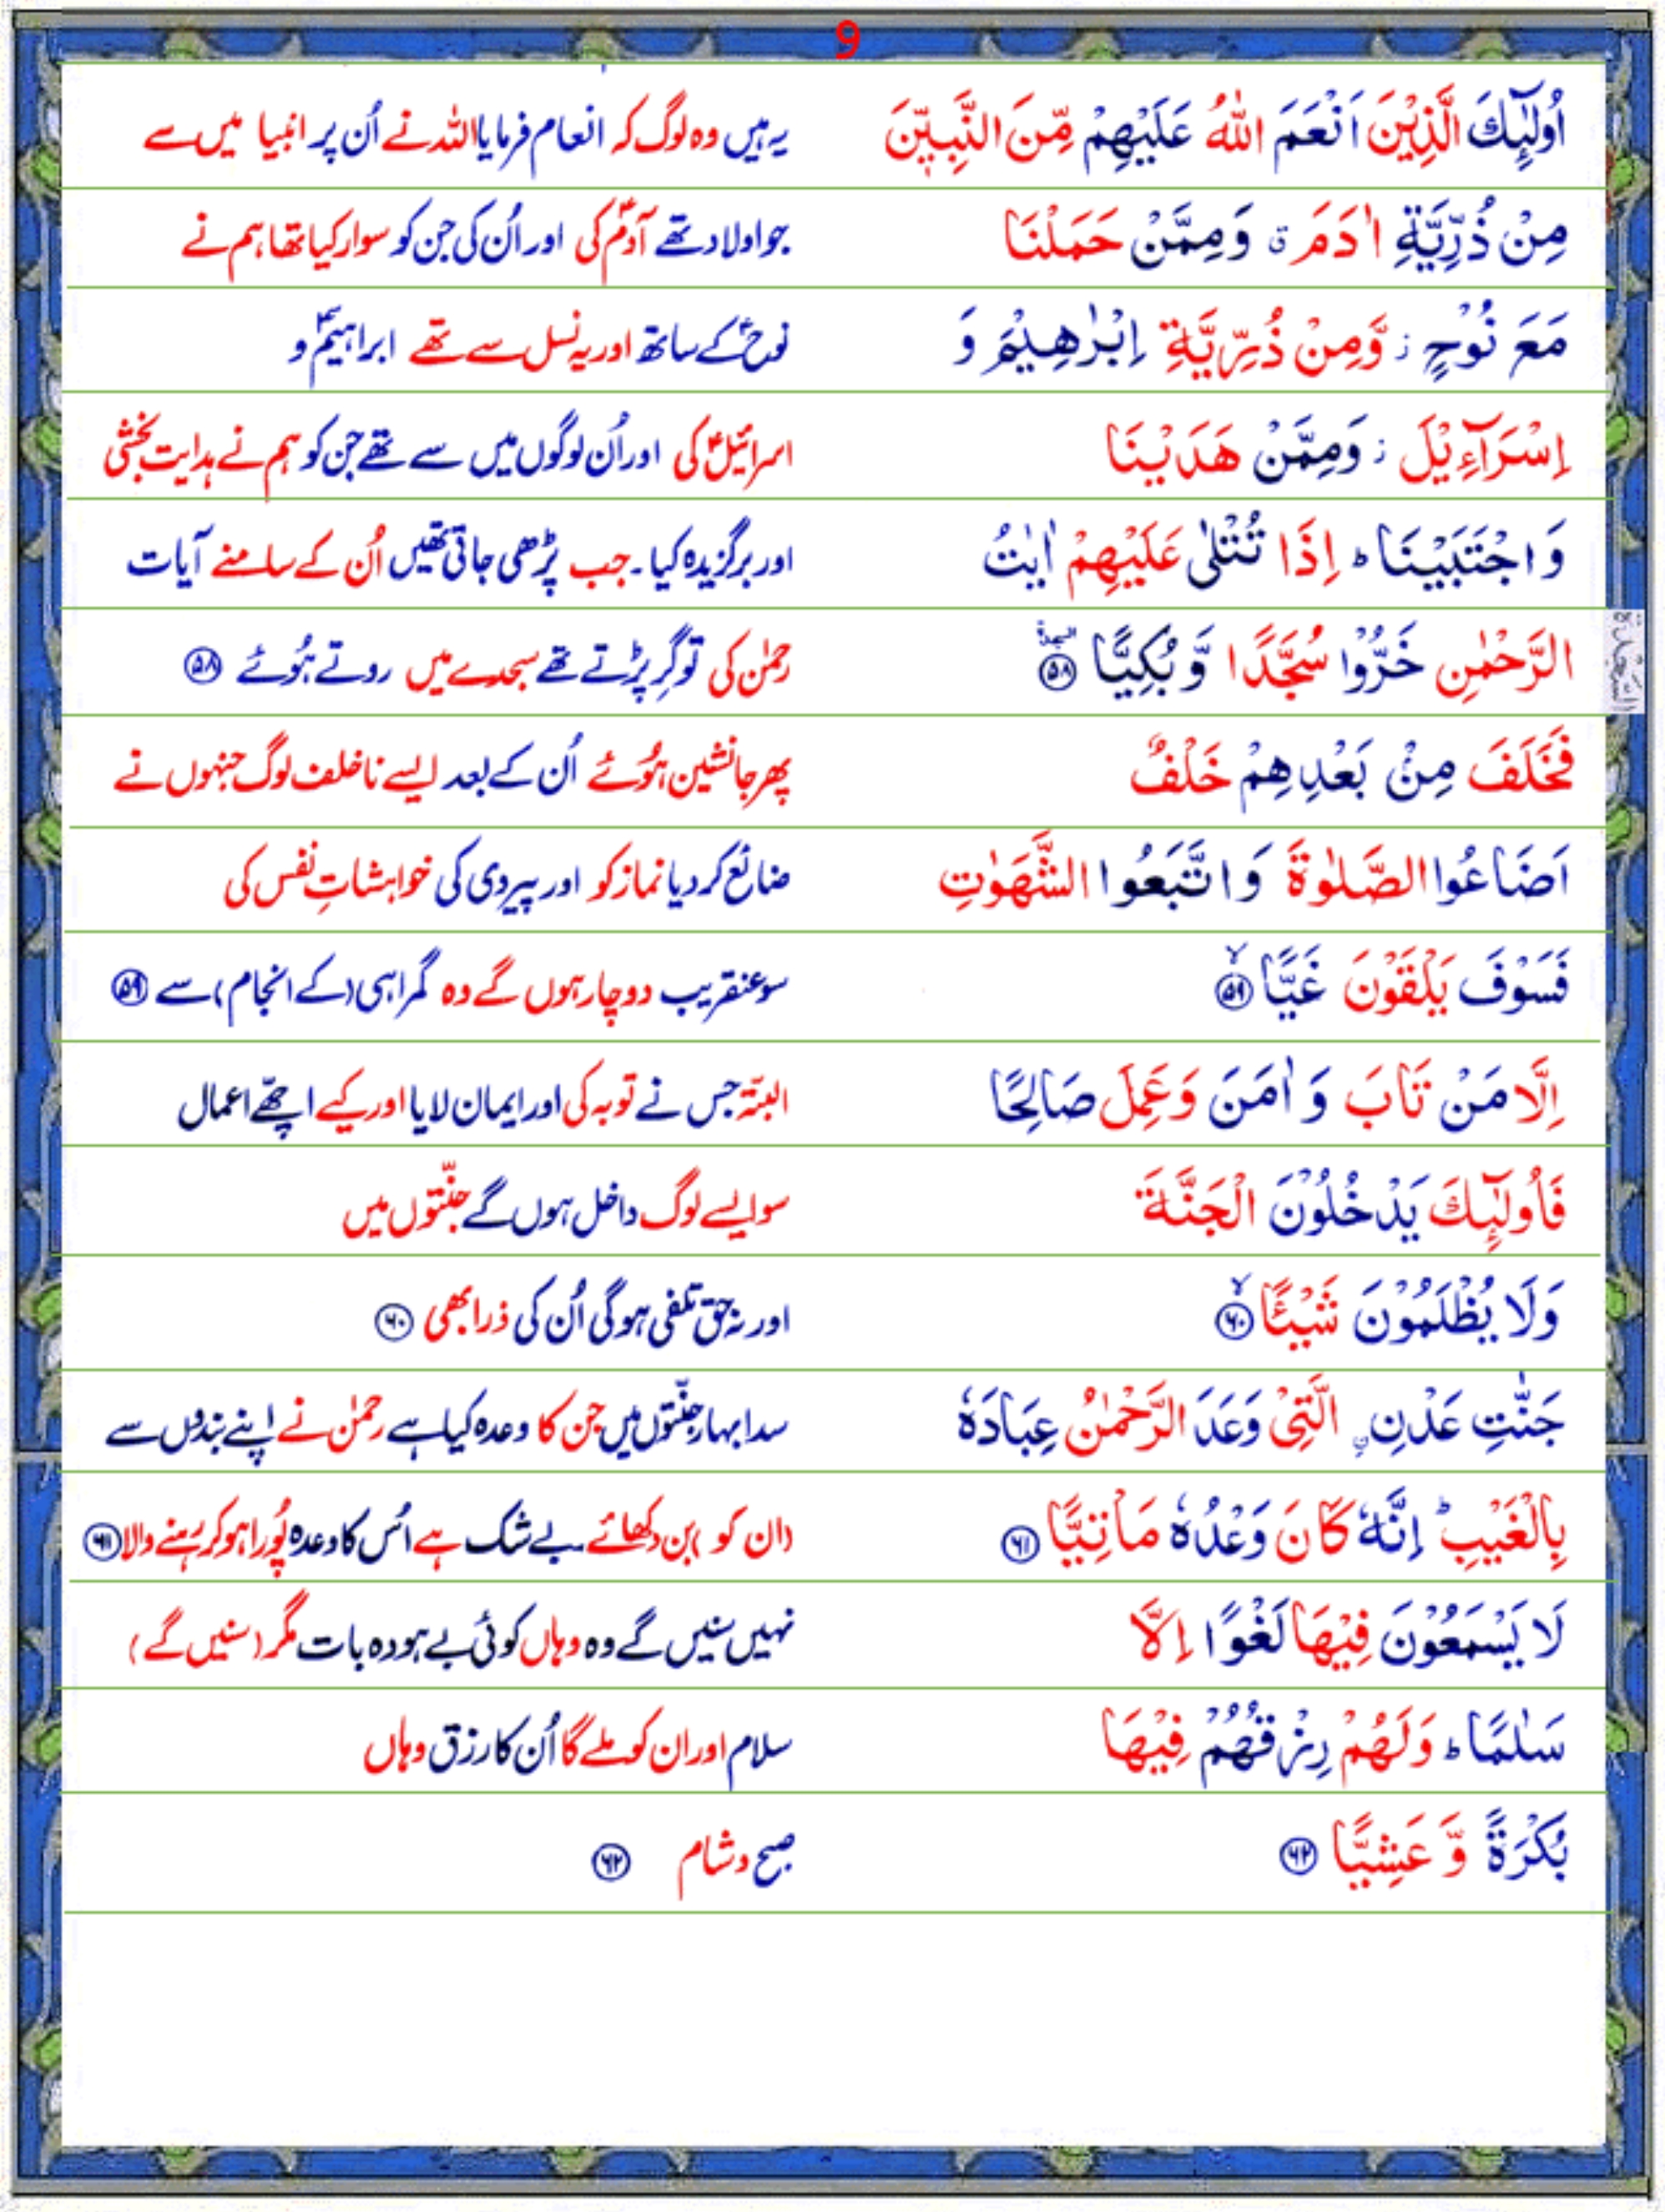 9
اُولٰٓئِكَ الَّذِيْنَ اَنْعَمَ اللّٰهُ عَلَيْهِمْ مِّنَ النَّبِيّٖنَ یہ ہیں وہ لوگ کہ انعام فرمایا اللہ نے اُن پر انبیا میں سے
مِنْ ذُرِّيَّةِ اٰدَمَ ۗ وَمِمَّنْ حَمَلْنَا جو اولاد تھے آدمؑ کی اور اُن کی جن کو سوار کیا تھا ہم نے
مَعَ نُوْحٍ ز وَّمِنْ ذُرِّيَّةِ اِبْرٰهِيْمَ وَ نوحؑ کے ساتھ اور یہ نسل سے تھے ابراہیمؑ و
اِسْرَآءِيْلَ ز وَمِمَّنْ هَدَيْنَا اسرائیلؑ کی اور اُن لوگوں میں سے تھے جن کو ہم نے ہدایت بخشی
وَاجْتَبَيْنَا ؕ اِذَا تُتْلٰى عَلَيْهِمْ اٰيٰتُ اور برگزیدہ کیا۔ جب پڑھی جاتی تھیں اُن کے سامنے آیات
الرَّحْمٰنِ خَرُّوْا سُجَّدًا وَّبُكِيًّا ۵۸ رحمٰن کی تو گر پڑتے تھے سجدے میں روتے ہُوئے ۵۸
السجدة
فَخَلَفَ مِنْۢ بَعْدِهِمْ خَلْفٌ پھر جانشین ہُوئے اُن کے بعد ایسے ناخلف لوگ جنہوں نے
اَضَاعُوا الصَّلٰوةَ وَاتَّبَعُوا الشَّهَوٰتِ ضائع کر دیا نماز کو اور پیروی کی خواہشاتِ نفس کی
فَسَوْفَ يَلْقَوْنَ غَيًّا ۙ ۵۹ سو عنقریب دوچار ہوں گے وہ گمراہی (کے انجام) سے ۵۹
اِلَّا مَنْ تَابَ وَاٰمَنَ وَعَمِلَ صَالِحًا البتّہ جس نے توبہ کی اور ایمان لایا اور کیے اچھّے اعمال
فَاُولٰٓئِكَ يَدْخُلُوْنَ الْجَنَّةَ سو ایسے لوگ داخل ہوں گے جنّتوں میں
وَلَا يُظْلَمُوْنَ شَيْئًا ۙ ۶۰ اور نہ حق تلفی ہوگی اُن کی ذرا بھی ۶۰
جَنّٰتِ عَدْنِ ۨ الَّتِيْ وَعَدَ الرَّحْمٰنُ عِبَادَهٗ سدا بہار جنّتوں میں جن کا وعدہ کیا ہے رحمٰن نے اپنے بندوں سے
بِالْغَيْبِ ؕ اِنَّهٗ كَانَ وَعْدُهٗ مَاْتِيًّا ۶۱ (ان کو) بن دکھائے۔ بے شک ہے اُس کا وعدہ پُورا ہو کر رہنے والا ۶۱
لَا يَسْمَعُوْنَ فِيْهَا لَغْوًا اِلَّا نہیں سنیں گے وہ وہاں کوئی بے ہودہ بات مگر (سنیں گے)
سَلٰمًا ؕ وَلَهُمْ رِزْقُهُمْ فِيْهَا سلام اور ان کو ملے گا اُن کا رزق وہاں
بُكْرَةً وَّعَشِيًّا ۶۲ صبح و شام ۶۲